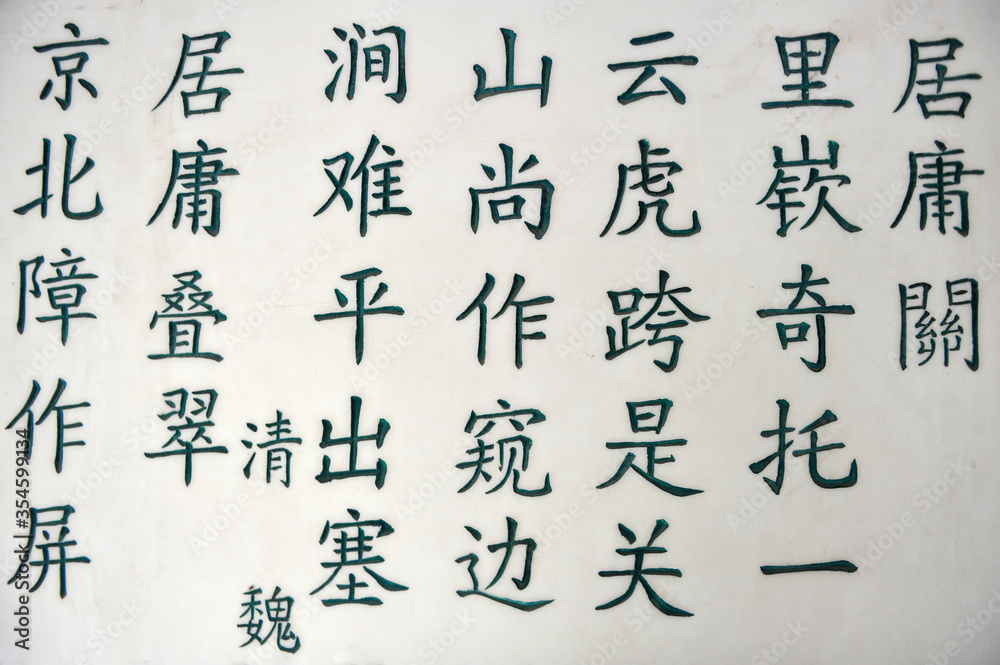 居庸關
里嶔奇托一
云虎跨是关
山尚作窥边
涧难平出塞
清 魏
居庸叠翠
京北障作屏
Adobe Stock | #354599134